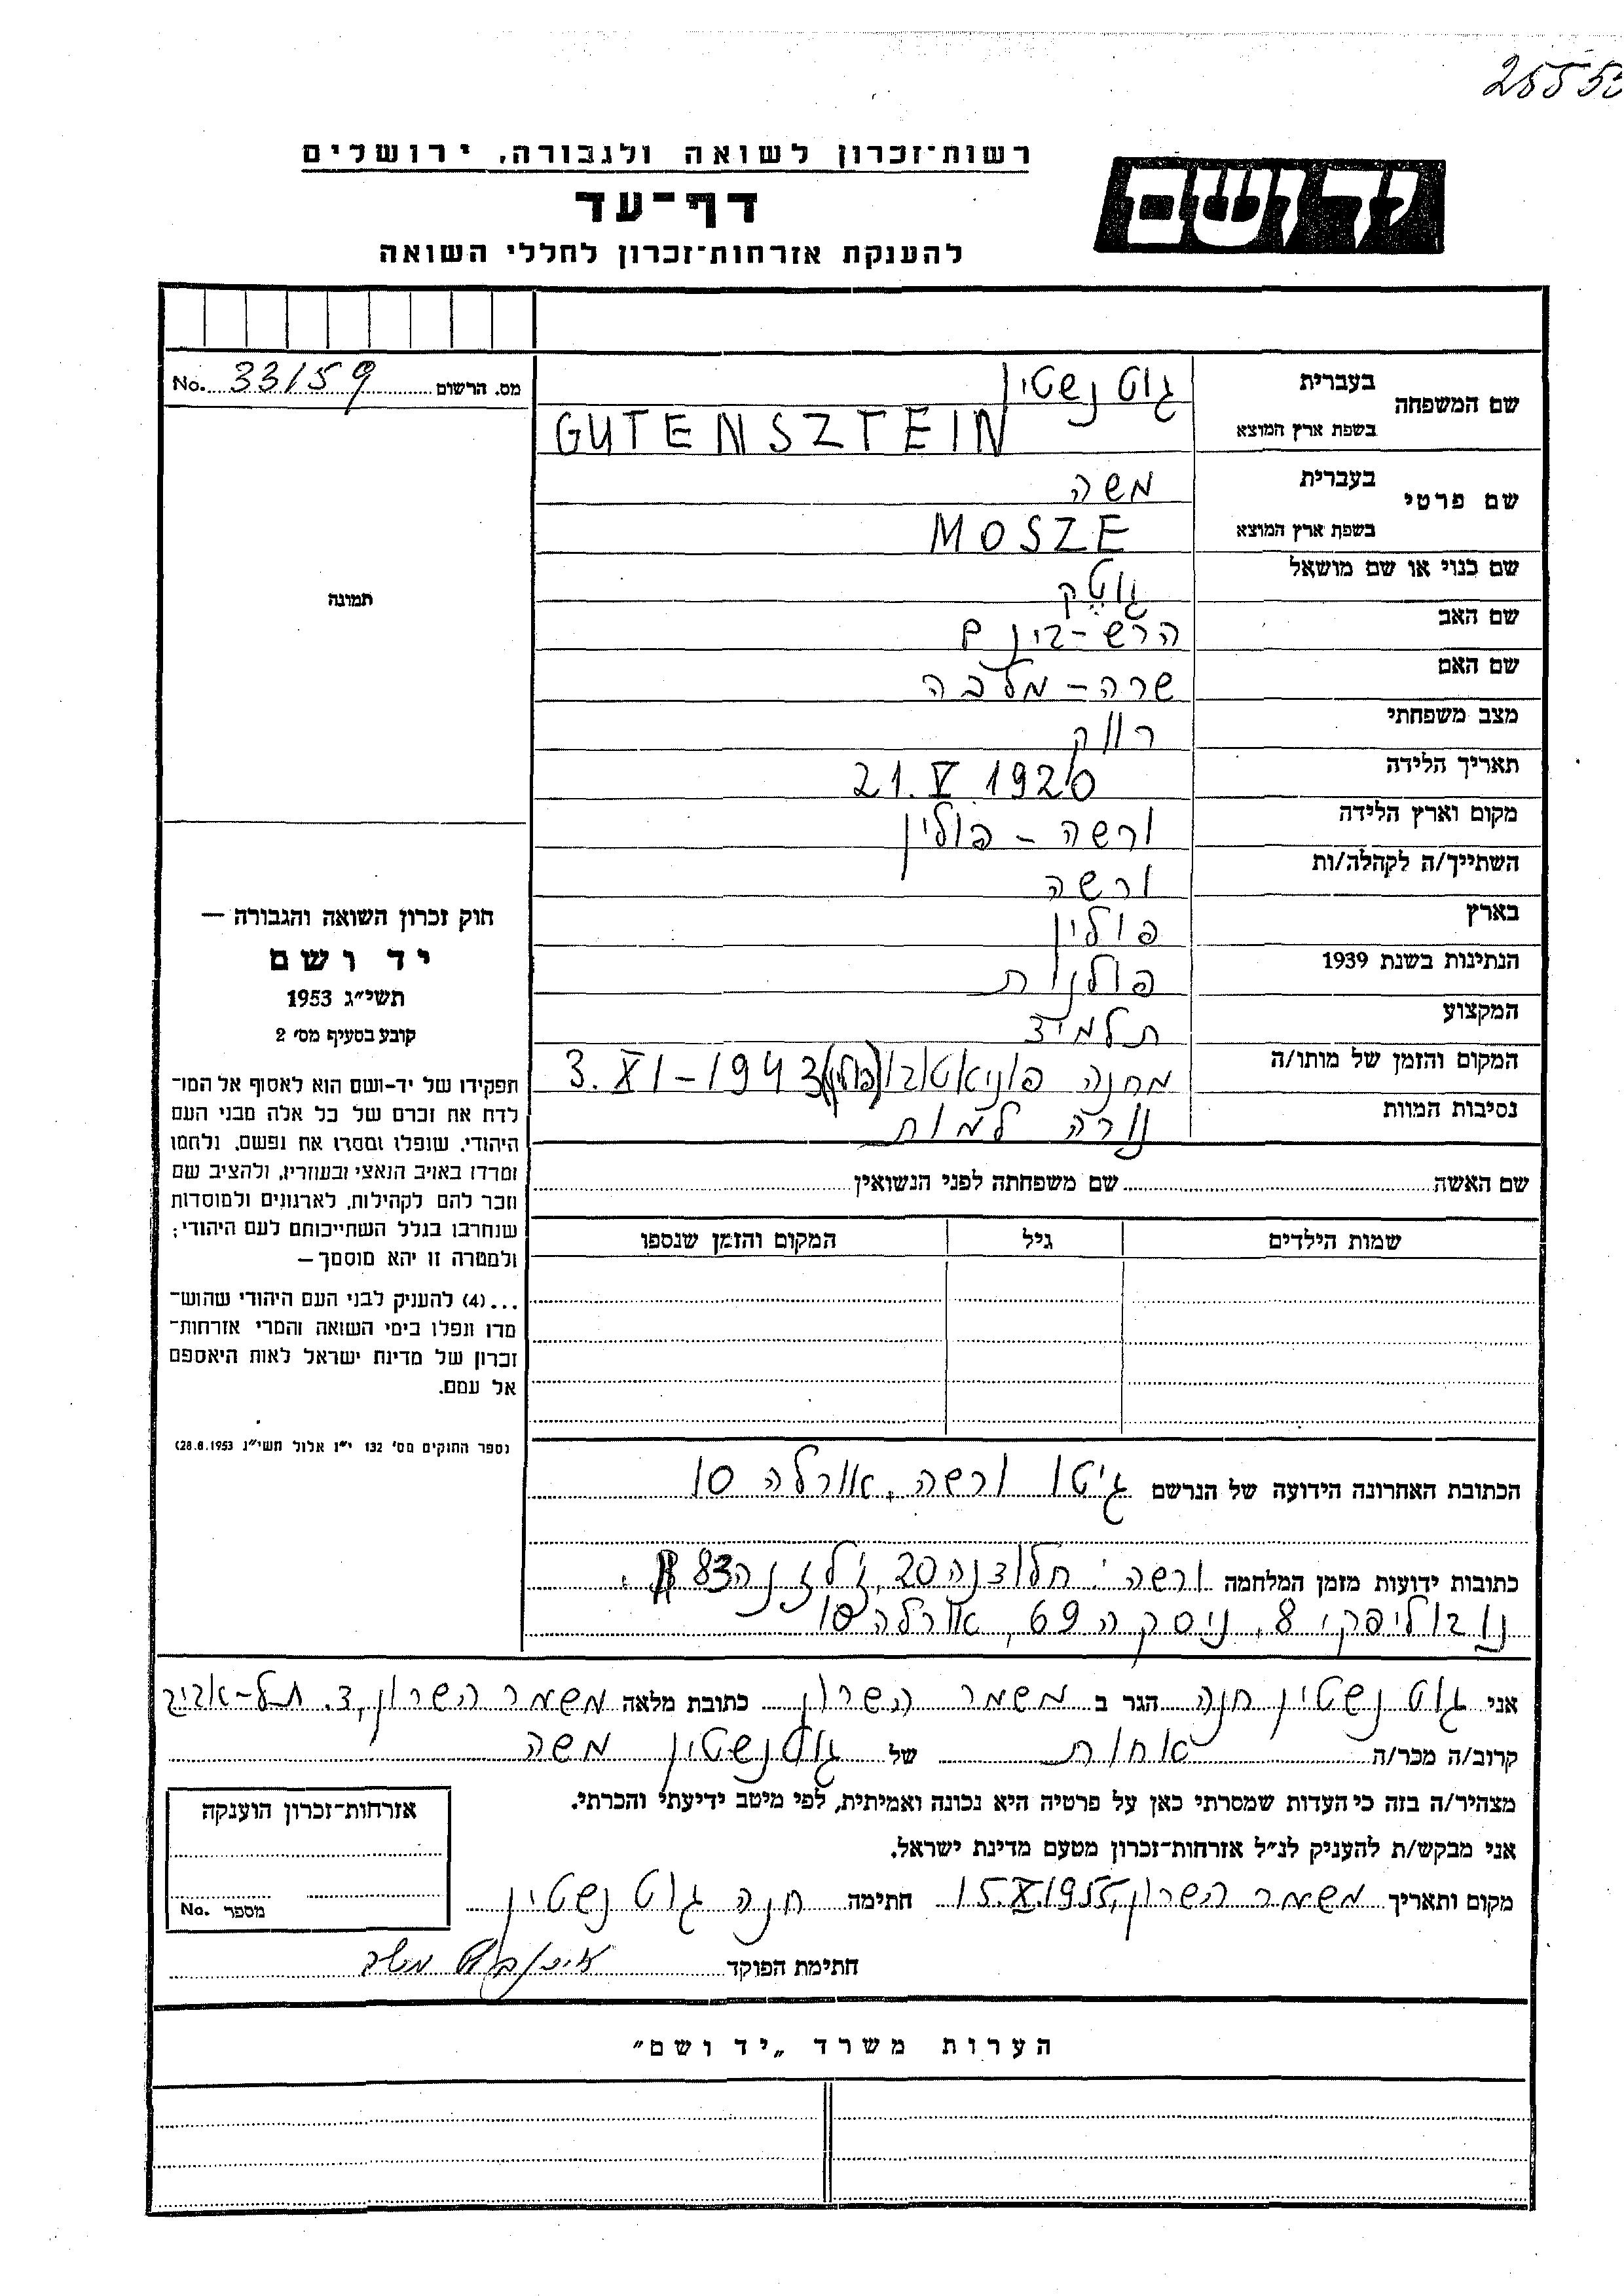 25553
רשות-זכרון לשואה ולגבורה, ירושלים
יד ושם
דף-עד
להענקת אזרחות-זכרון לחללי השואה
מס. הרשום 33159 No.
שם המשפחה בעברית גוטנשטין
בשפת ארץ המוצא GUTENSZTEIN
שם פרטי בעברית משה
בשפת ארץ המוצא MOSZE
שם כנוי או שם מושאל גוטק
שם האב הרש-בינם
שם האם שרה-מלכה
מצב משפחתי רווק
תאריך הלידה 21. V 1920
מקום וארץ הלידה ורשה - פולין
השתייך/ה לקהלה/ות ורשה
בארץ פולין
הנתינות בשנת 1939 פולנית
המקצוע תלמיד
המקום והזמן של מותו/ה מחנה פוניאטובו (פולין) 3. XI-1943
נסיבות המוות נורה למות
תמונה
חוק זכרון השואה והגבורה —
יד ושם
תשי״ג 1953
קובע בסעיף מס׳ 2
תפקידו של יד-ושם הוא לאסוף אל המו־
לדת את זכרם של כל אלה מבני העם
היהודי, שנפלו ומסרו את נפשם, נלחמו
ומרדו באויב הנאצי ובעוזריו, ולהציב שם
וזכר להם לקהילות, לארגונים ולמוסדות
שנחרבו בגלל השתייכותם לעם היהודי;
ולמטרה זו יהא מוסמך —
...(4) להעניק לבני העם היהודי שהוש־
מדו ונפלו בימי השואה והמרי אזרחות־
זכרון של מדינת ישראל לאות היאספם
אל עמם.
(ספר החוקים מס׳ 132 י״ז אלול תשי״ג 28.8.1953)
שם האשה שם משפחתה לפני הנשואין
שמות הילדים גיל המקום והזמן שנספו
הכתובת האחרונה הידועה של הנרשם גיטו ורשה, אורלה 10
כתובות ידועות מזמן המלחמה ורשה: חלודנה 20, ז'לזנה 83,
נובוליפקי 8, ניסקה 69, אורלה 10
אני גוטנשטין חנה הגר ב משמר השרון כתובת מלאה משמר השרון, ד. תל-אביב
קרוב/ה מכר/ה אחות של גוטנשטין משה
מצהיר/ה בזה כי העדות שמסרתי כאן על פרטיה היא נכונה ואמיתית, לפי מיטב ידיעתי והכרתי.
אני מבקש/ת להעניק לנ״ל אזרחות-זכרון מטעם מדינת ישראל.
מקום ותאריך משמר השרון, 15.X.1955 חתימה חנה גוטנשטין
חתימת הפוקד
אזרחות-זכרון הוענקה
מספר No.
הערות משרד „יד ושם״